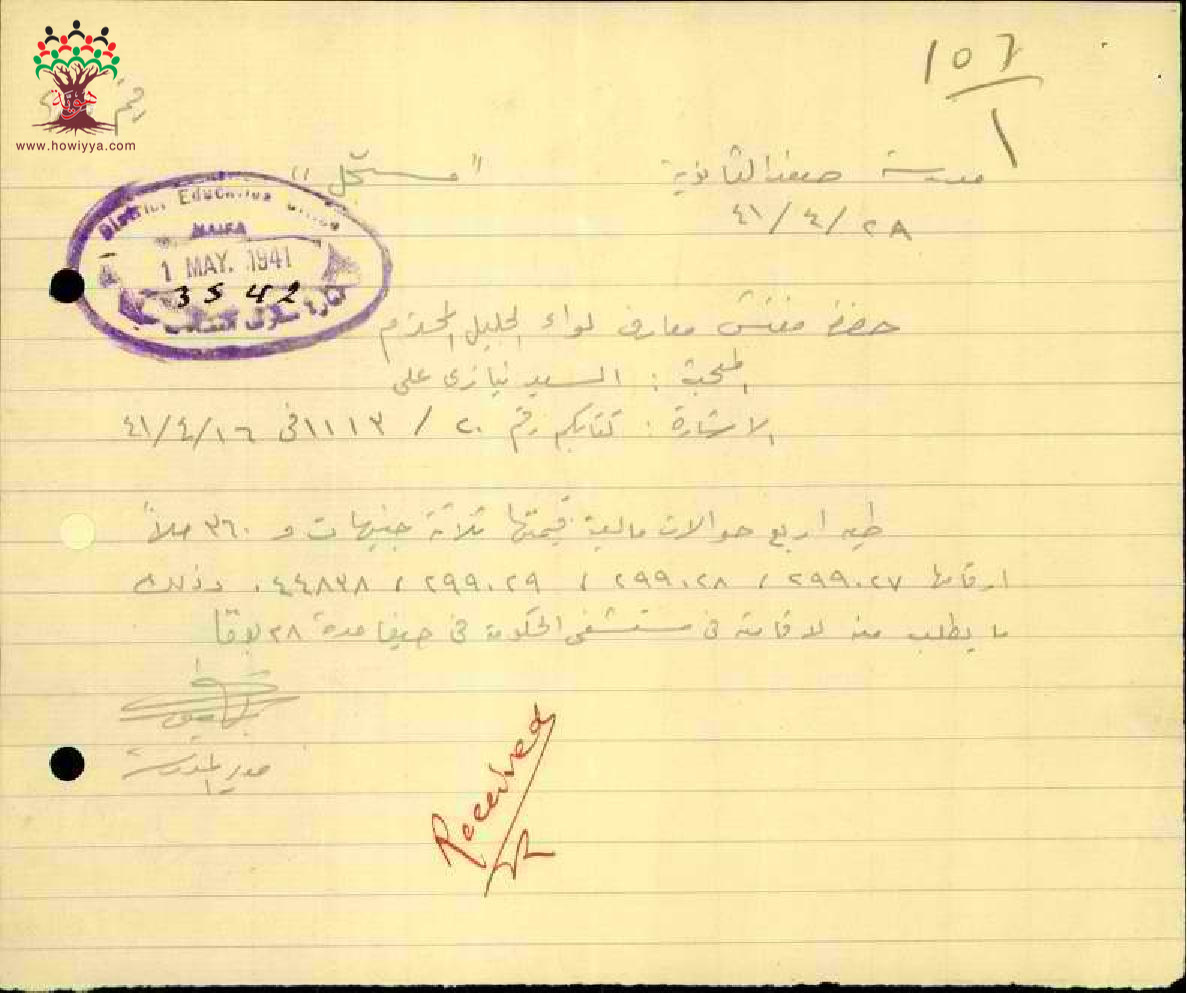 هوية
www.howiyya.com
رقم
١٥٦
١
مدرسة صفد الثانوية
"مستعجل"
٢٨/٤/٤١
District Education Office
HAIFA
1 MAY. 1941
3542
حضرة مفتش معارف لواء الجليل المحترم
: السيد نيازي علي
الاشارة : كتابكم رقم ٢٠ / ١١١٣ في ٤١/٤/١٦
طيه اربع حوالات مالية قيمتها ثلاثة جنيهات و ٣٦٠ ملاً
ارقامها ٢٩٩٠٢٧ / ٢٩٩٠٢٨ / ٢٩٩٠٢٩ / ٠٤٤٨٣٨ وذلك
ما يطلب منه لاقامته في مستشفى الحكومة في حيفا مدة ٢٨ يوما
مدير المدرسة
Received